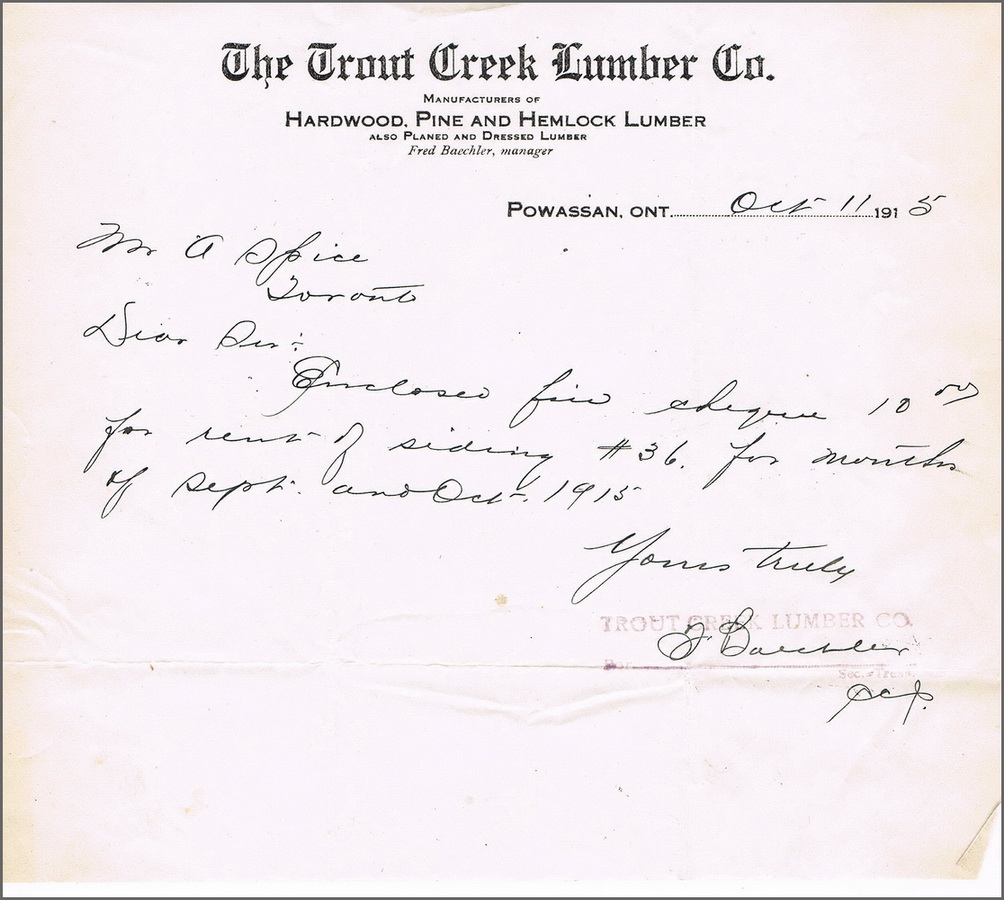 The Trout Creek Lumber Co.
MANUFACTURERS OF
HARDWOOD, PINE AND HEMLOCK LUMBER
ALSO PLANED AND DRESSED LUMBER
Fred Baechler, manager
POWASSAN, ONT. Oct 11 1915
Mr A Spice
Toronto
Dear Sir:
Enclosed find cheque 10 00
for rent of siding #36. for months
of Sept. and Oct. 1915
Yours truly
TROUT CREEK LUMBER CO.
F Baechler
Per
Sec.-Treas.